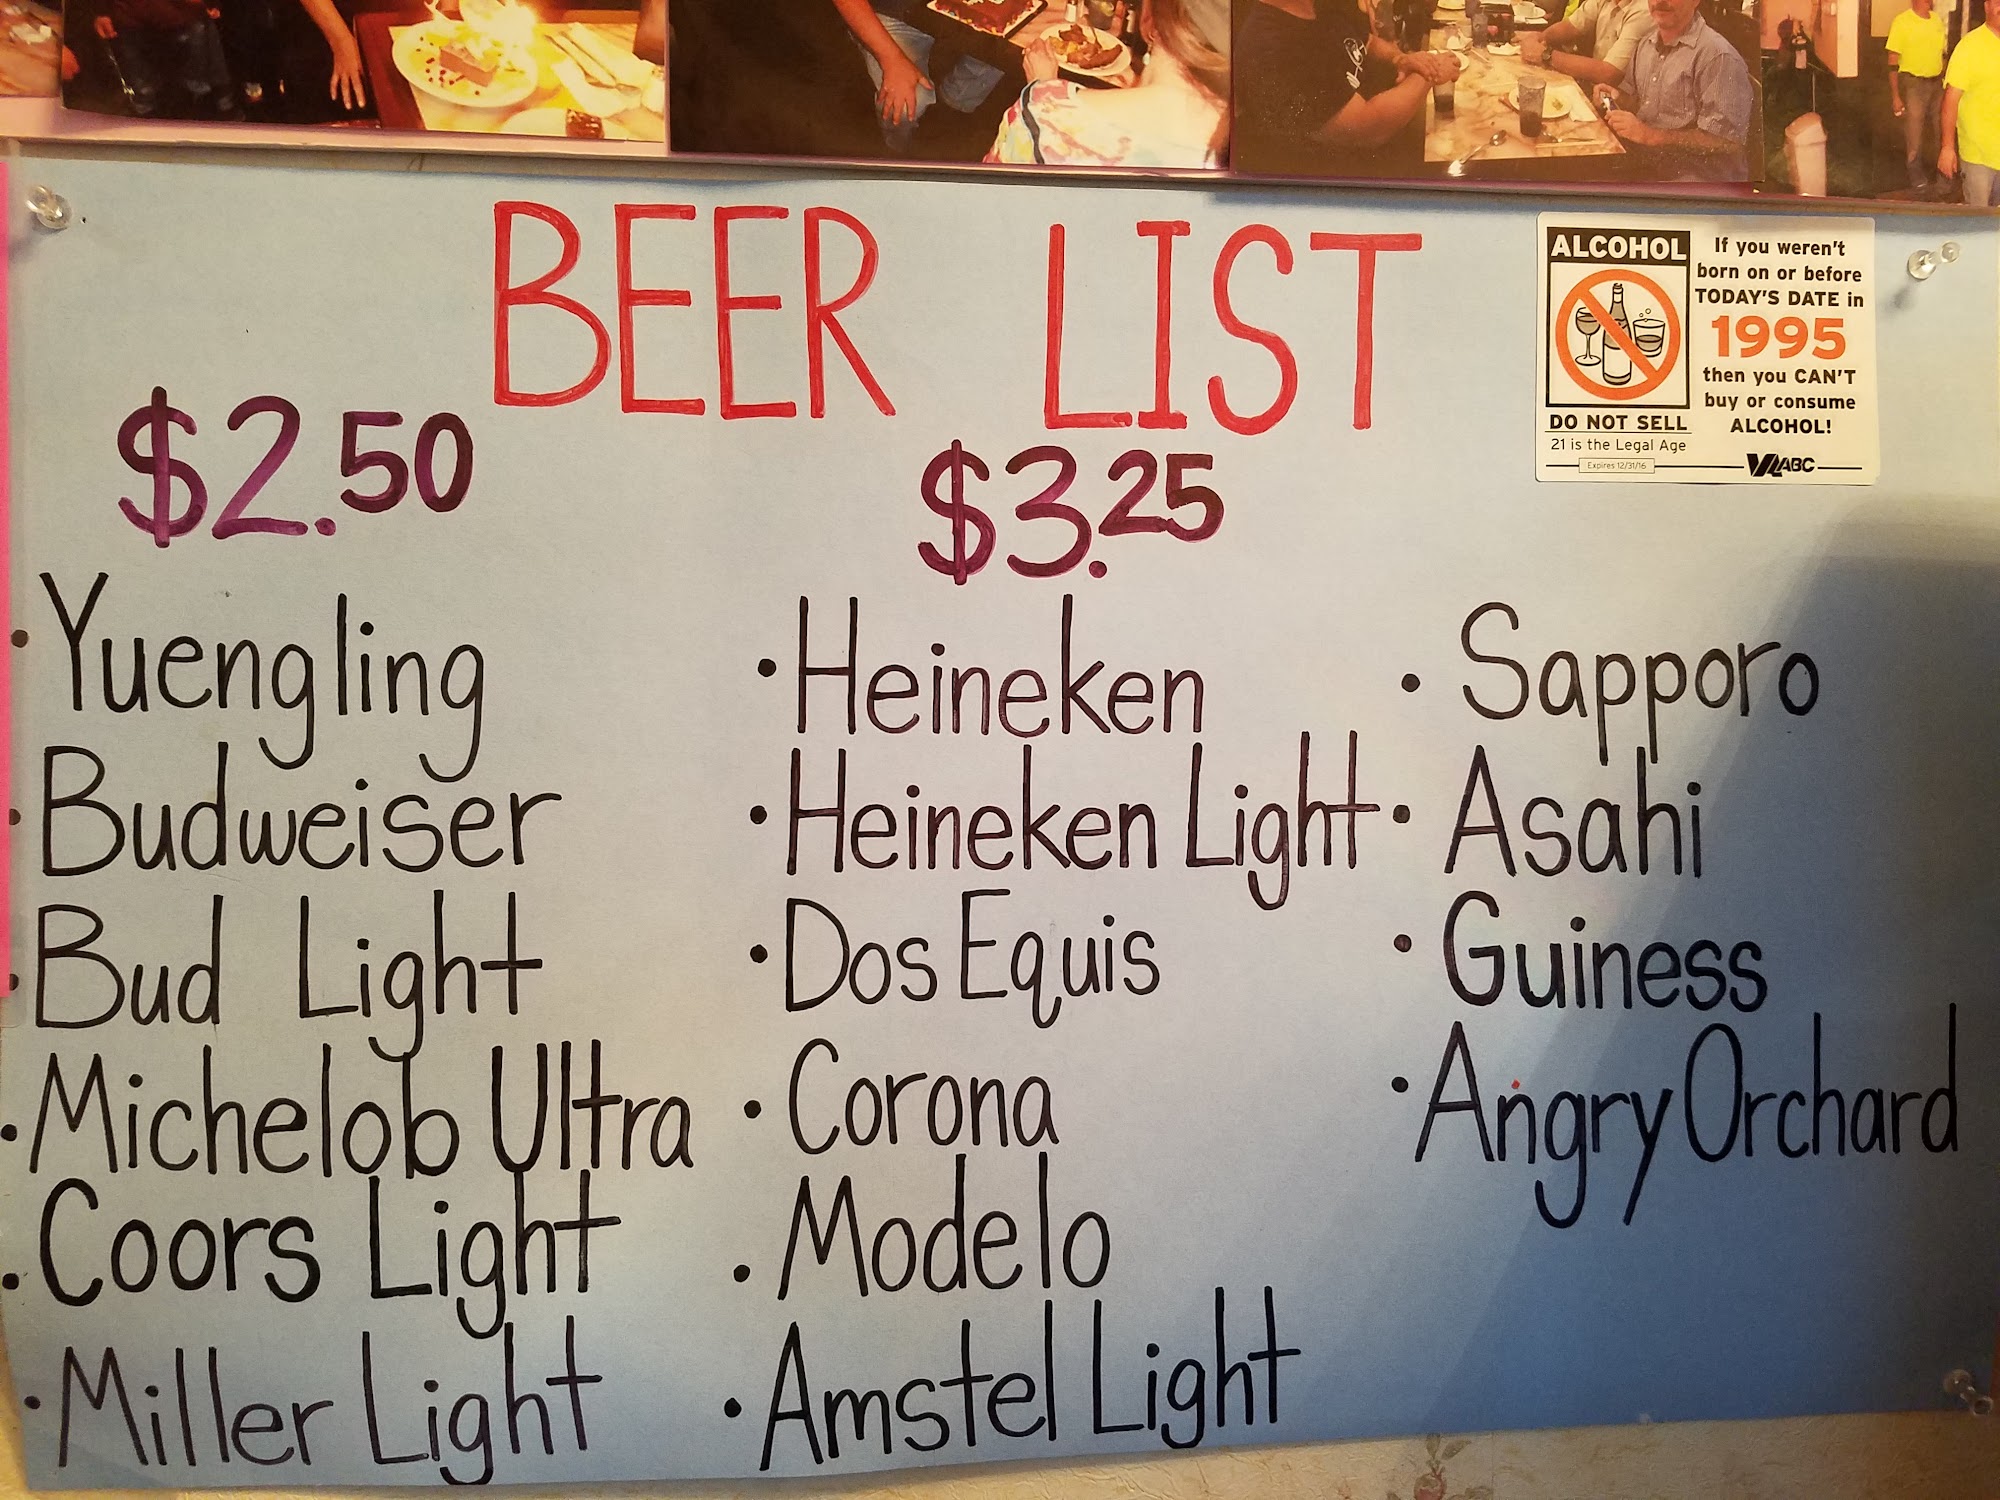 BEER LIST
ALCOHOL
DO NOT SELL
21 is the Legal Age
Expires 12/31/16
If you weren't
born on or before
TODAY'S DATE in
1995
then you CAN'T
buy or consume
ALCOHOL!
VA ABC
$2.50
• Yuengling
• Budweiser
• Bud Light
• Michelob Ultra
• Coors Light
• Miller Light
$3.25
• Heineken
• Heineken Light
• Dos Equis
• Corona
• Modelo
• Amstel Light
• Sapporo
• Asahi
• Guiness
• Angry Orchard